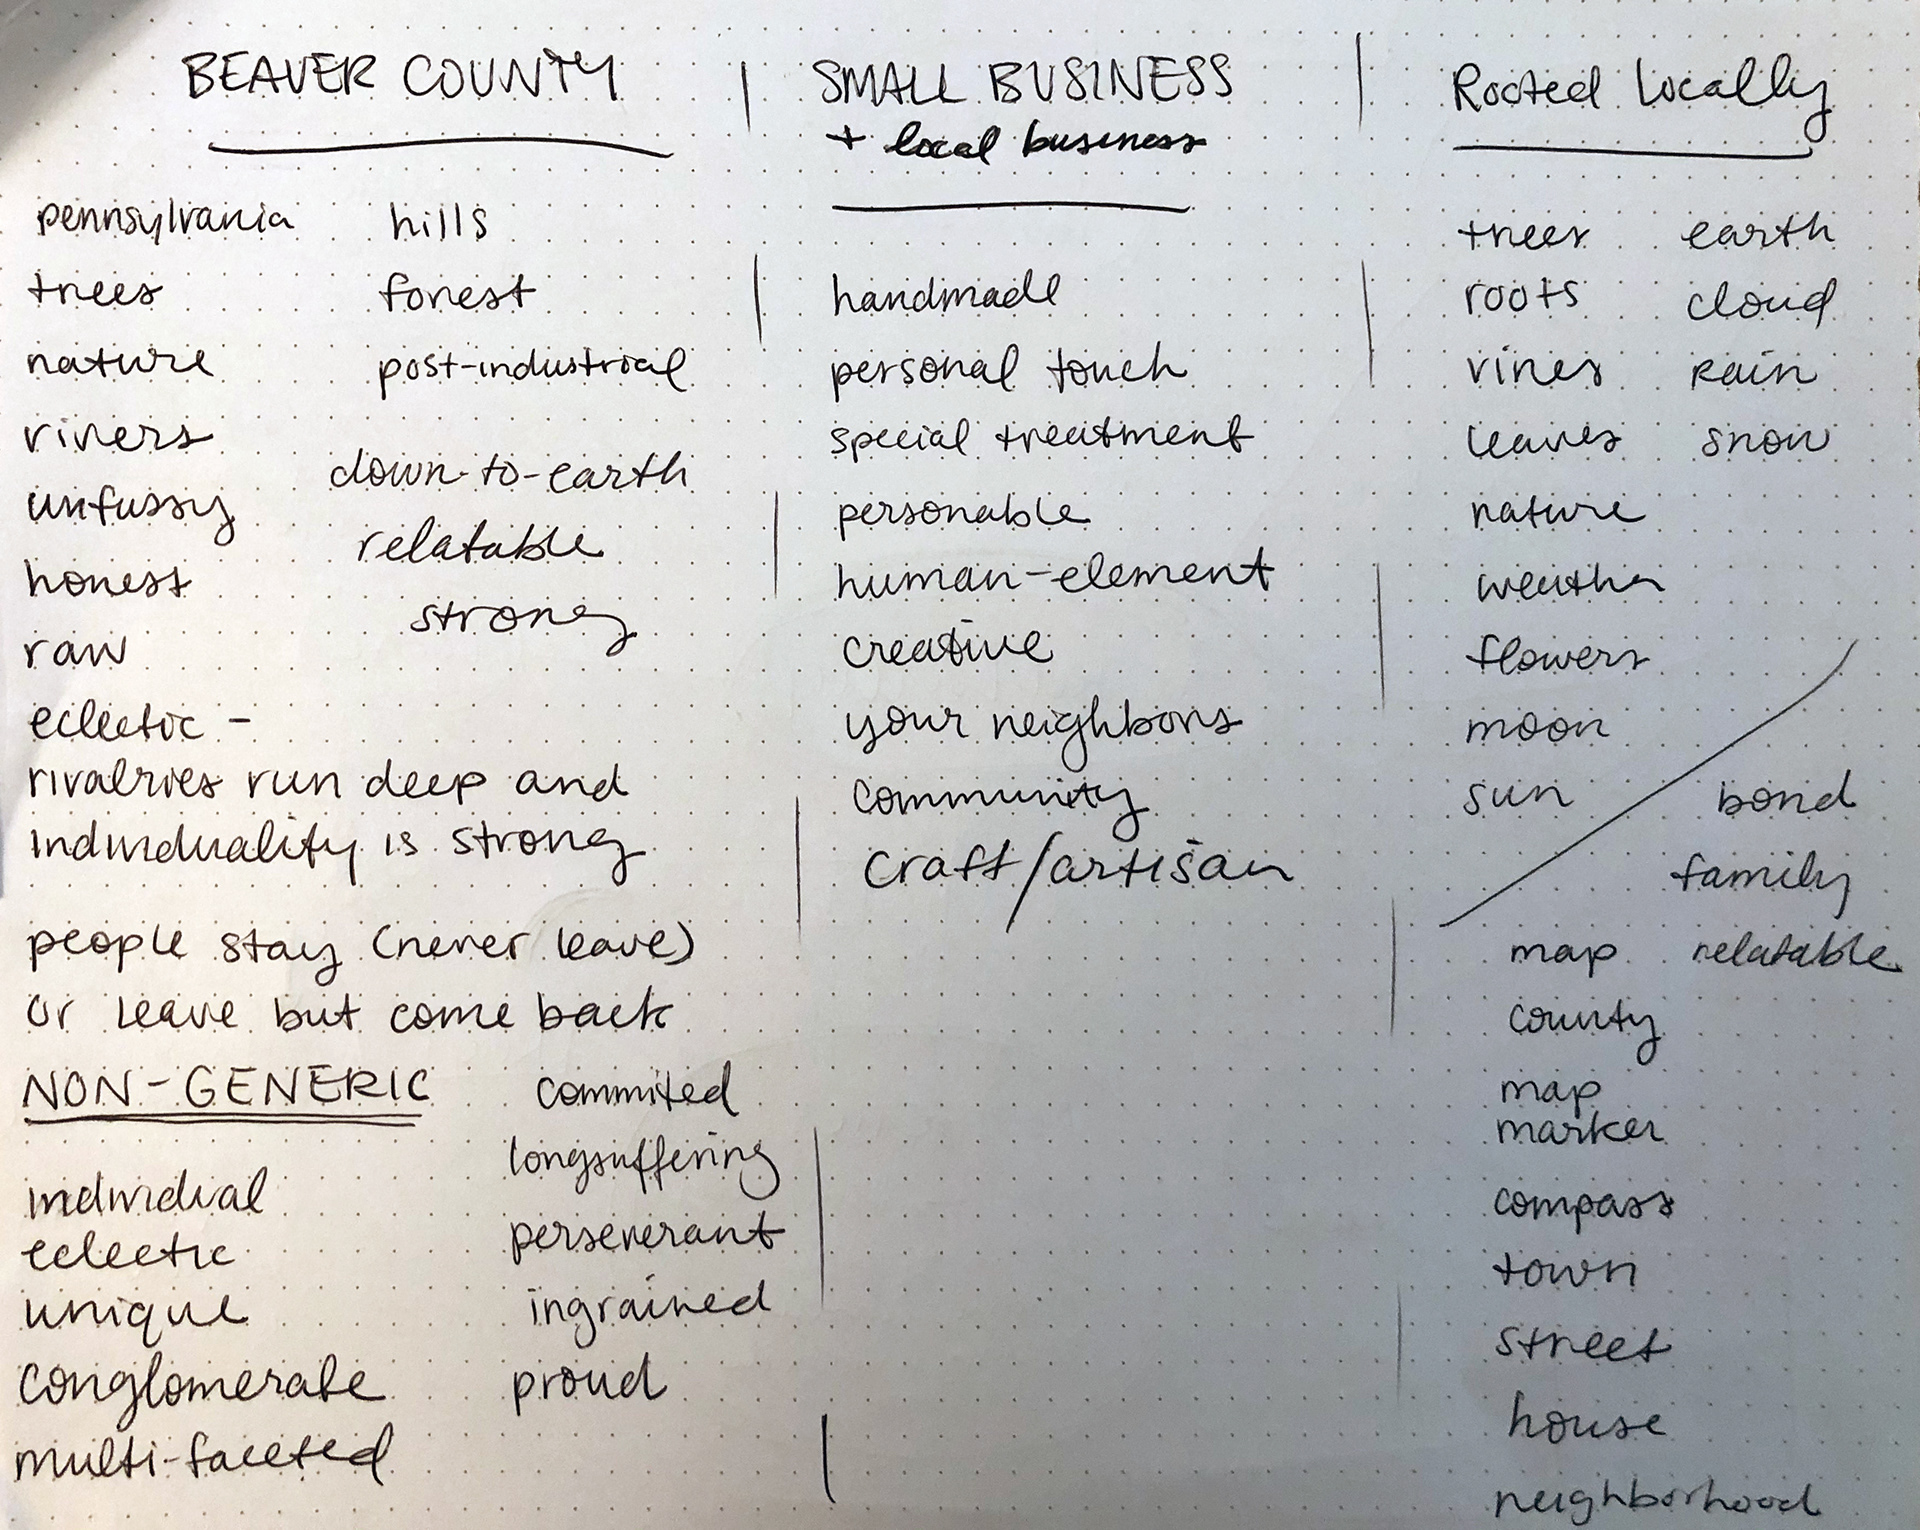 BEAVER COUNTY
pennsylvania hills
trees forest
nature post-industrial
rivers
down-to-earth
unfussy
relatable
honest
strong
raw
eclectic -
rivalries run deep and
individuality is strong
people stay (never leave)
or leave but come back
NON-GENERIC
commited
longsuffering
individual
perseverant
eclectic
ingrained
unique
proud
conglomerate
multi-faceted
SMALL BUSINESS
+ local business
handmade
personal touch
special treatment
personable
human-element
creative
your neighbors
community
craft/artisan
Rooted Locally
trees earth
roots cloud
vines rain
leaves snow
nature
weather
flowers
moon
sun bond
family
map relatable
county
map
marker
compass
town
street
house
neighborhood